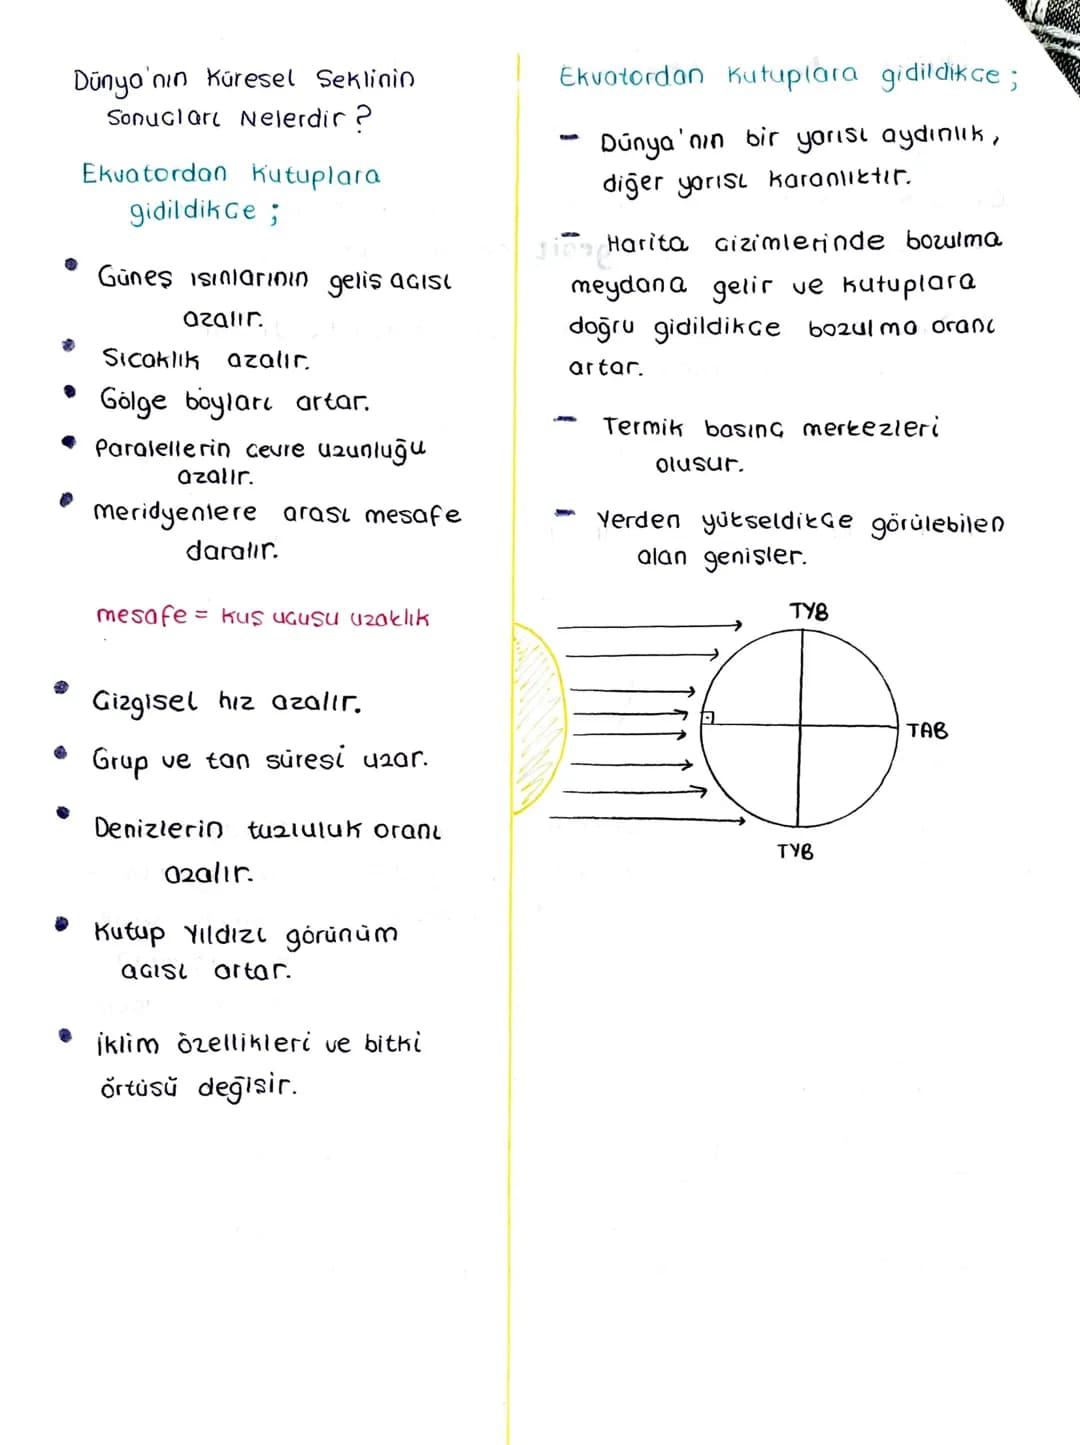 Dünya'nın Küresel Şeklinin
Sonucları Nelerdir ?
Ekvatordan Kutuplara
gidildikçe ;
Güneş ışınlarının geliş açısı
azalır.
Sıcaklık azalır.
Gölge boyları artar.
Paralellerin çevre uzunluğu
azalır.
meridyenlere arası mesafe
daralır.
mesafe = kuş uçuşu uzaklık
Çizgisel hız azalır.
Grup ve tan süresi uzar.
Denizlerin tuzluluk oranı
azalır.
Kutup Yıldızı görünüm
açısı artar.
İklim özellikleri ve bitki
örtüsü değişir.
Ekvatordan Kutuplara gidildikçe ;
- Dünya'nın bir yarısı aydınlık,
diğer yarısı karanlıktır.
- Harita çizimlerinde bozulma
meydana gelir ve kutuplara
doğru gidildikçe bozulma oranı
artar.
- Termik basınç merkezleri
oluşur.
- Yerden yükseldikçe görülebilen
alan genişler.
TYB
TAB
TYB